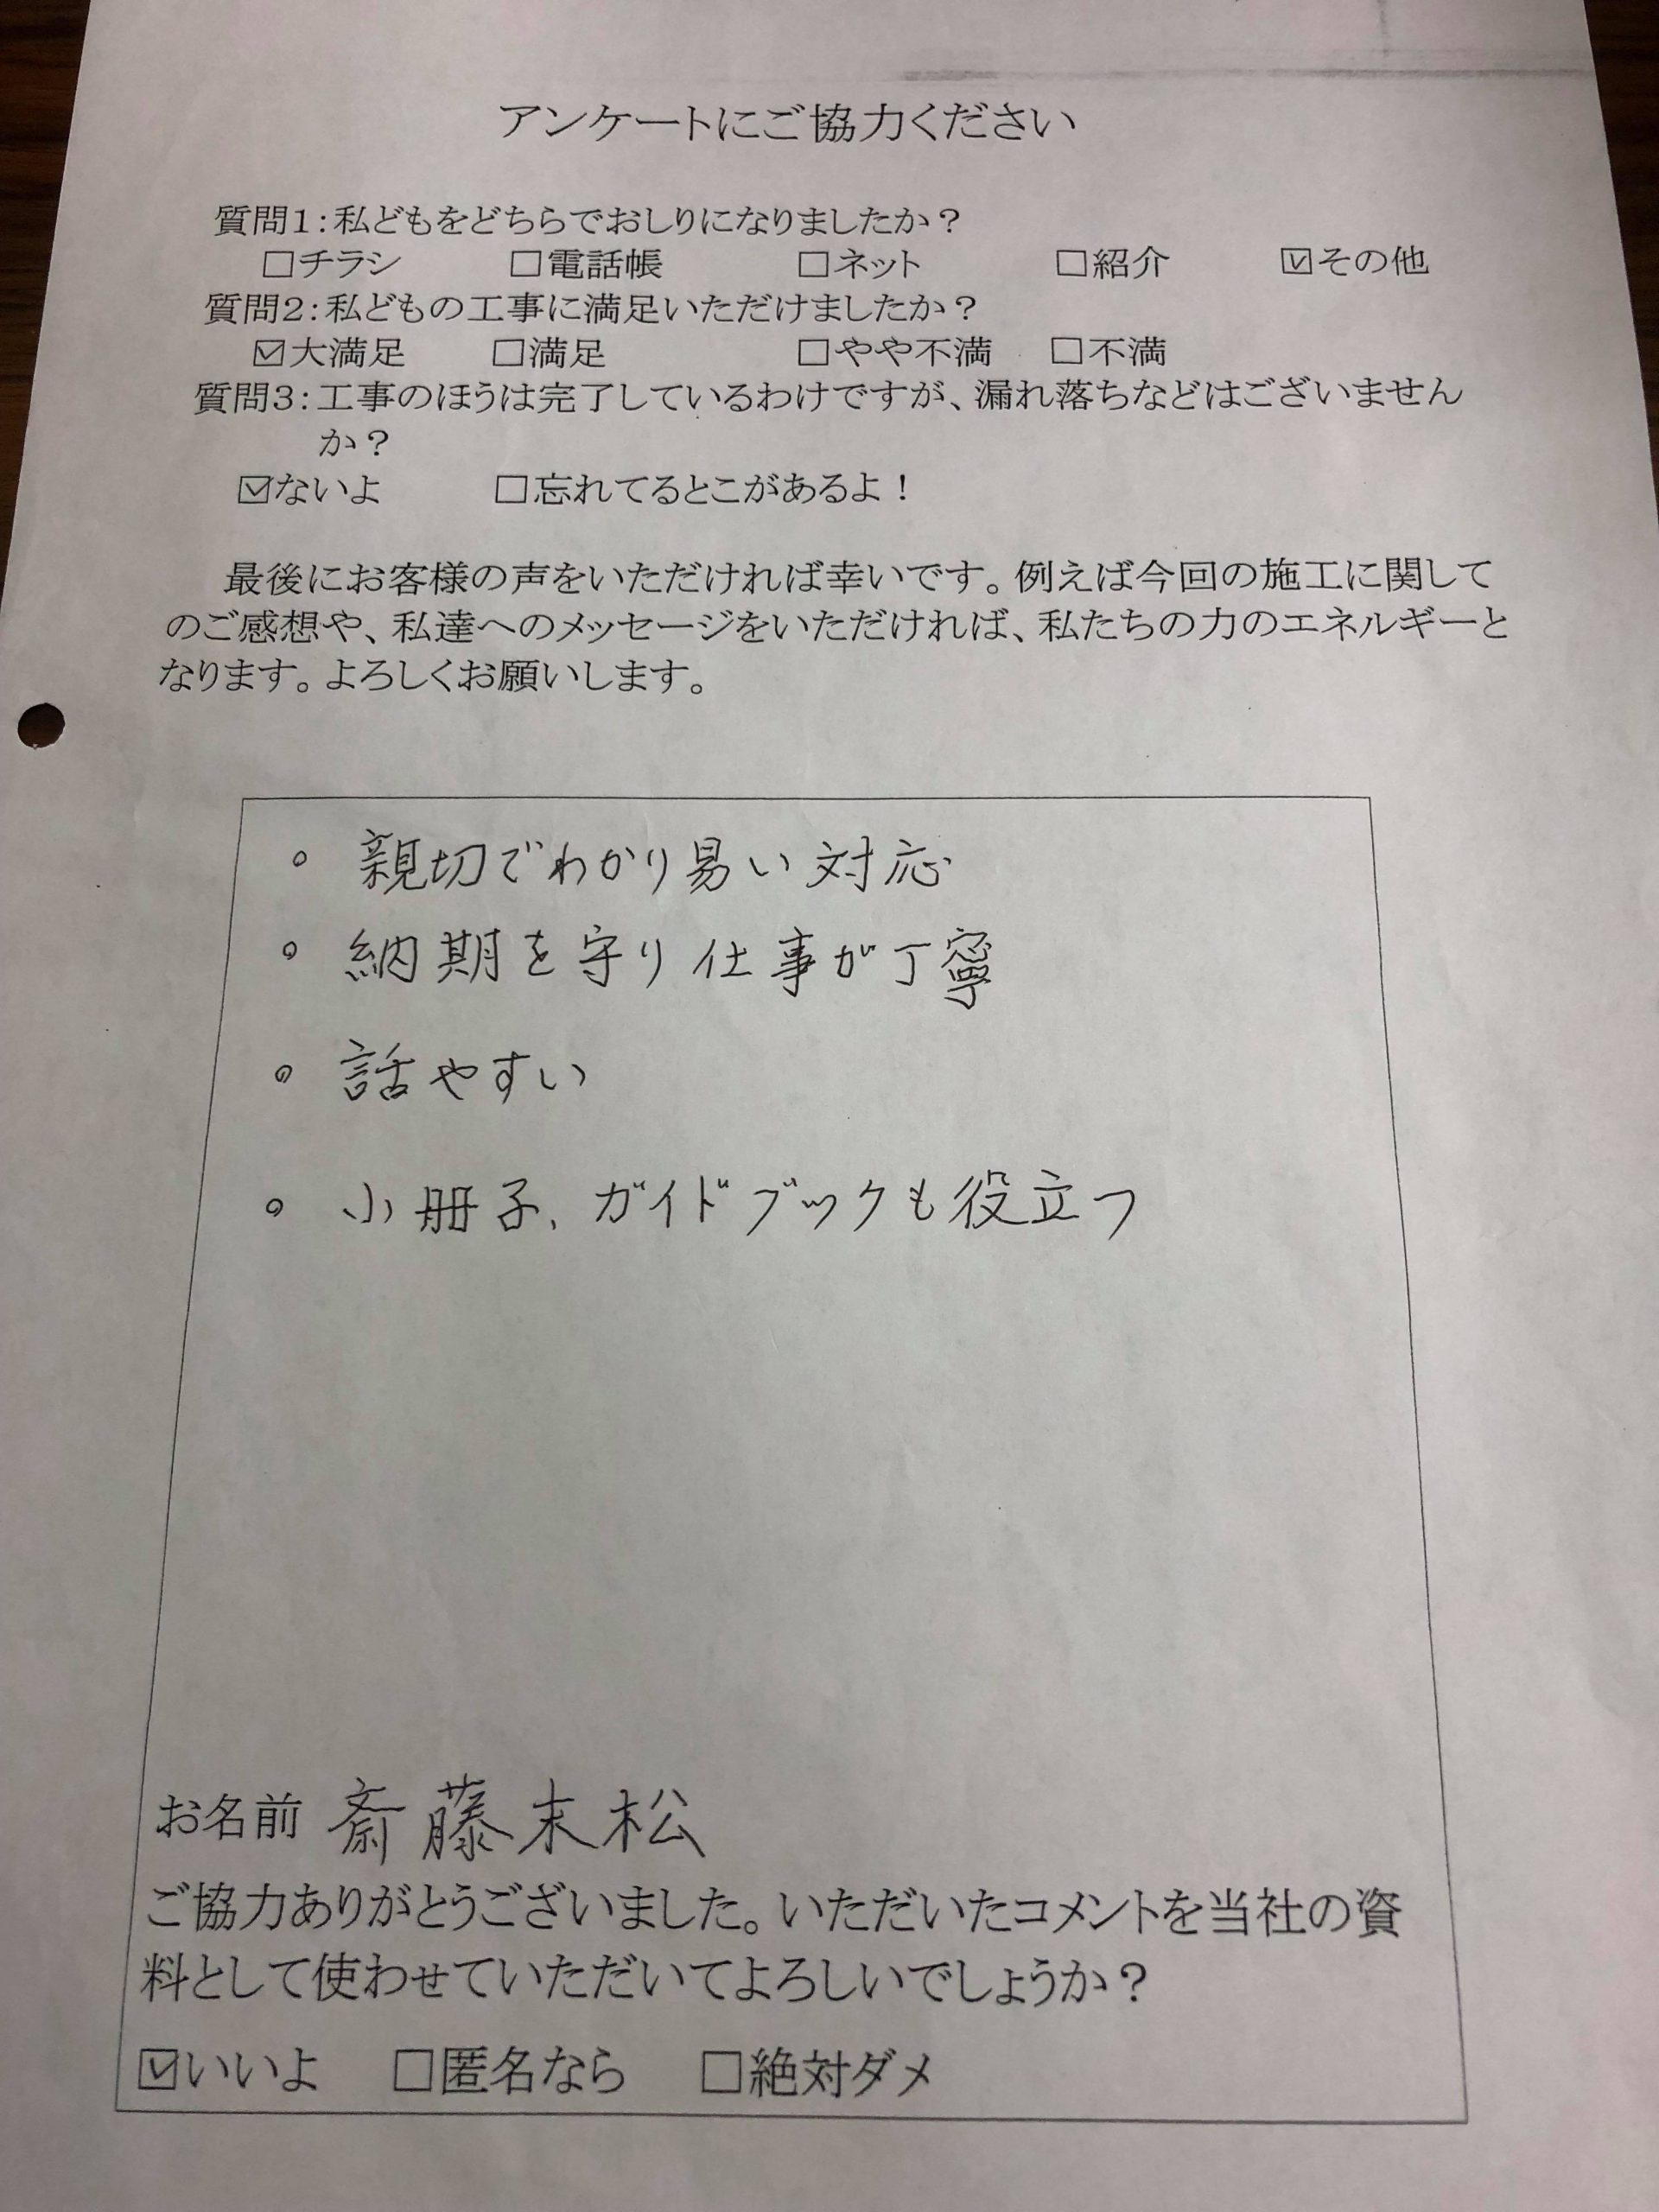 アンケートにご協力ください
質問1：私どもをどちらでおしりになりましたか？
□チラシ □電話帳 □ネット □紹介 ☑その他
質問2：私どもの工事に満足いただけましたか？
☑大満足 □満足 □やや不満 □不満
質問3：工事のほうは完了しているわけですが、漏れ落ちなどはございません
か？
☑ないよ □忘れてるとこがあるよ！
最後にお客様の声をいただければ幸いです。例えば今回の施工に関して
のご感想や、私達へのメッセージをいただければ、私たちの力のエネルギーと
なります。よろしくお願いします。
。親切でわかり易い対応
。納期を守り仕事が丁寧
。話やすい
。小冊子、ガイドブックも役立つ
お名前 斎藤末松
ご協力ありがとうございました。いただいたコメントを当社の資
料として使わせていただいてよろしいでしょうか？
☑いいよ □匿名なら □絶対ダメ